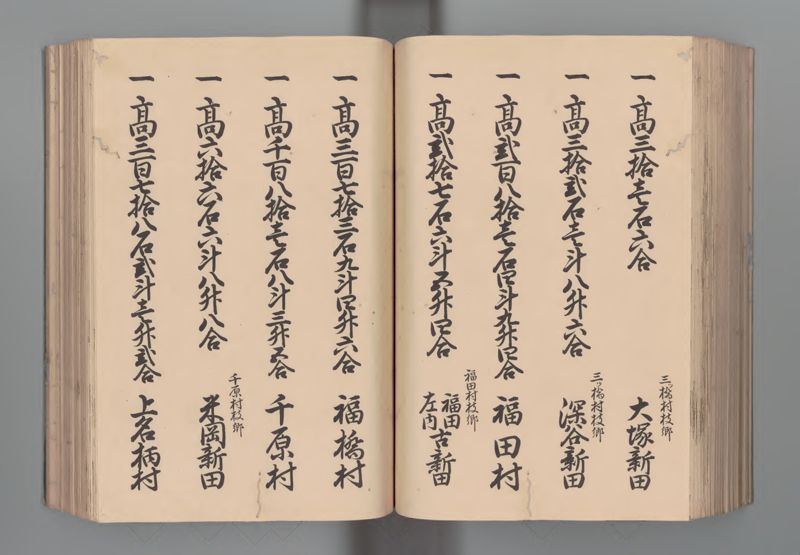 一 高三拾壱石六合
三ッ橋村枝郷
大塚新田
一 高三拾弐石壱斗八升六合
三ッ橋村枝郷
深谷新田
一 高弐百八拾壱石四斗九升四合 福田村
一 高弐拾七石六斗五升四合
福田村枝郷
福田
左内
古新田
一 高三百七拾三石九斗四升六合 福橋村
一 高千百八拾壱石八斗三升五合 千原村
一 高六拾六石六斗八升八合
千原村枝郷
米岡新田
一 高三百七拾八石弐斗壱升弐合 上名柄村